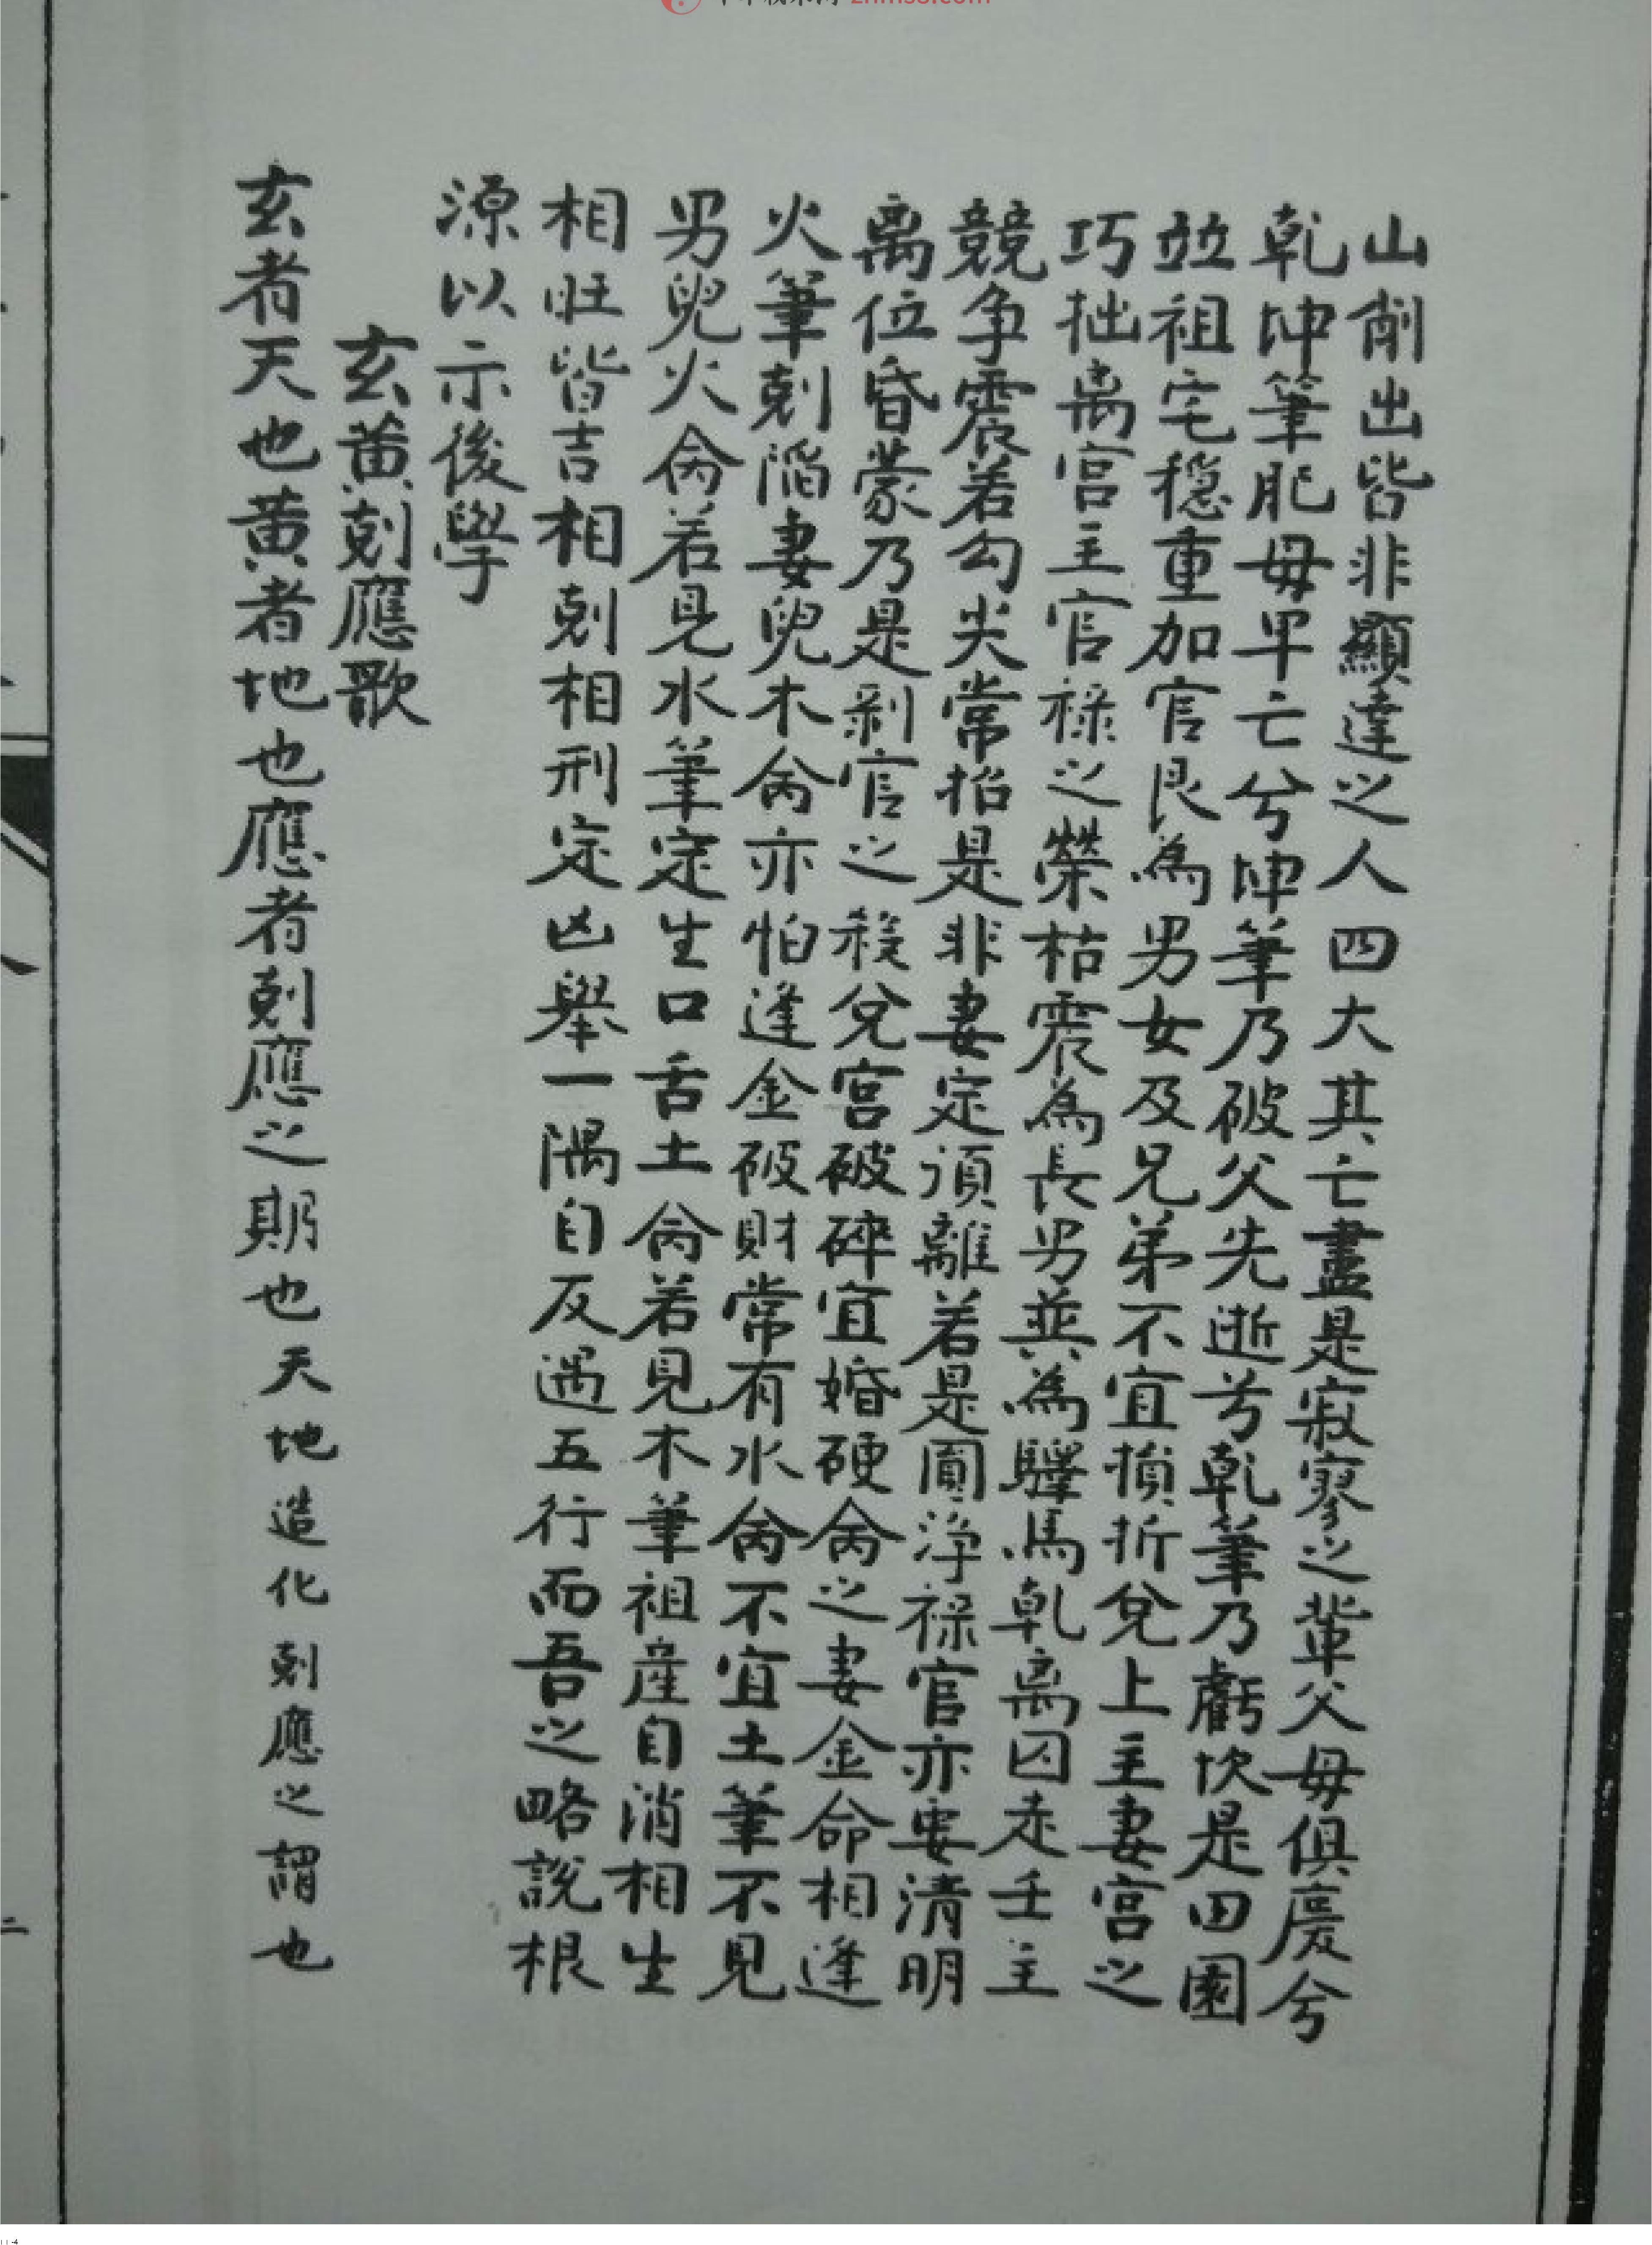 山削出皆非顯達之人四大其亡盡是寂寥之輩父母俱慶兮
乾坤筆肥母早亡兮坤筆乃破父先逝兮乾筆乃虧坎是田園
並祖宅穩重加官艮為男女及兄弟不宜損折兌上主妻宮之
巧拙离宮主官祿之榮枯震為長男並為驛馬乾离囚走壬主
競争震若勾尖常招是非妻定須離若是圓淨祿官亦要清明
离位昏蒙乃是剥官之殺兌宮破碎宜婚硬禽之妻金命相逢
火筆剋陷妻兒木禽亦怕逢金破財常有水禽不宜土筆不見
男兒火禽若見水筆定生口舌土禽若見木筆祖産自消相生
相旺皆吉相剋相刑定凶舉一隅自反遇五行而吾之略説根
源以示後學
玄黄剋應歌
玄者天也黄者地也應者剋應之期也天地造化剋應之謂也